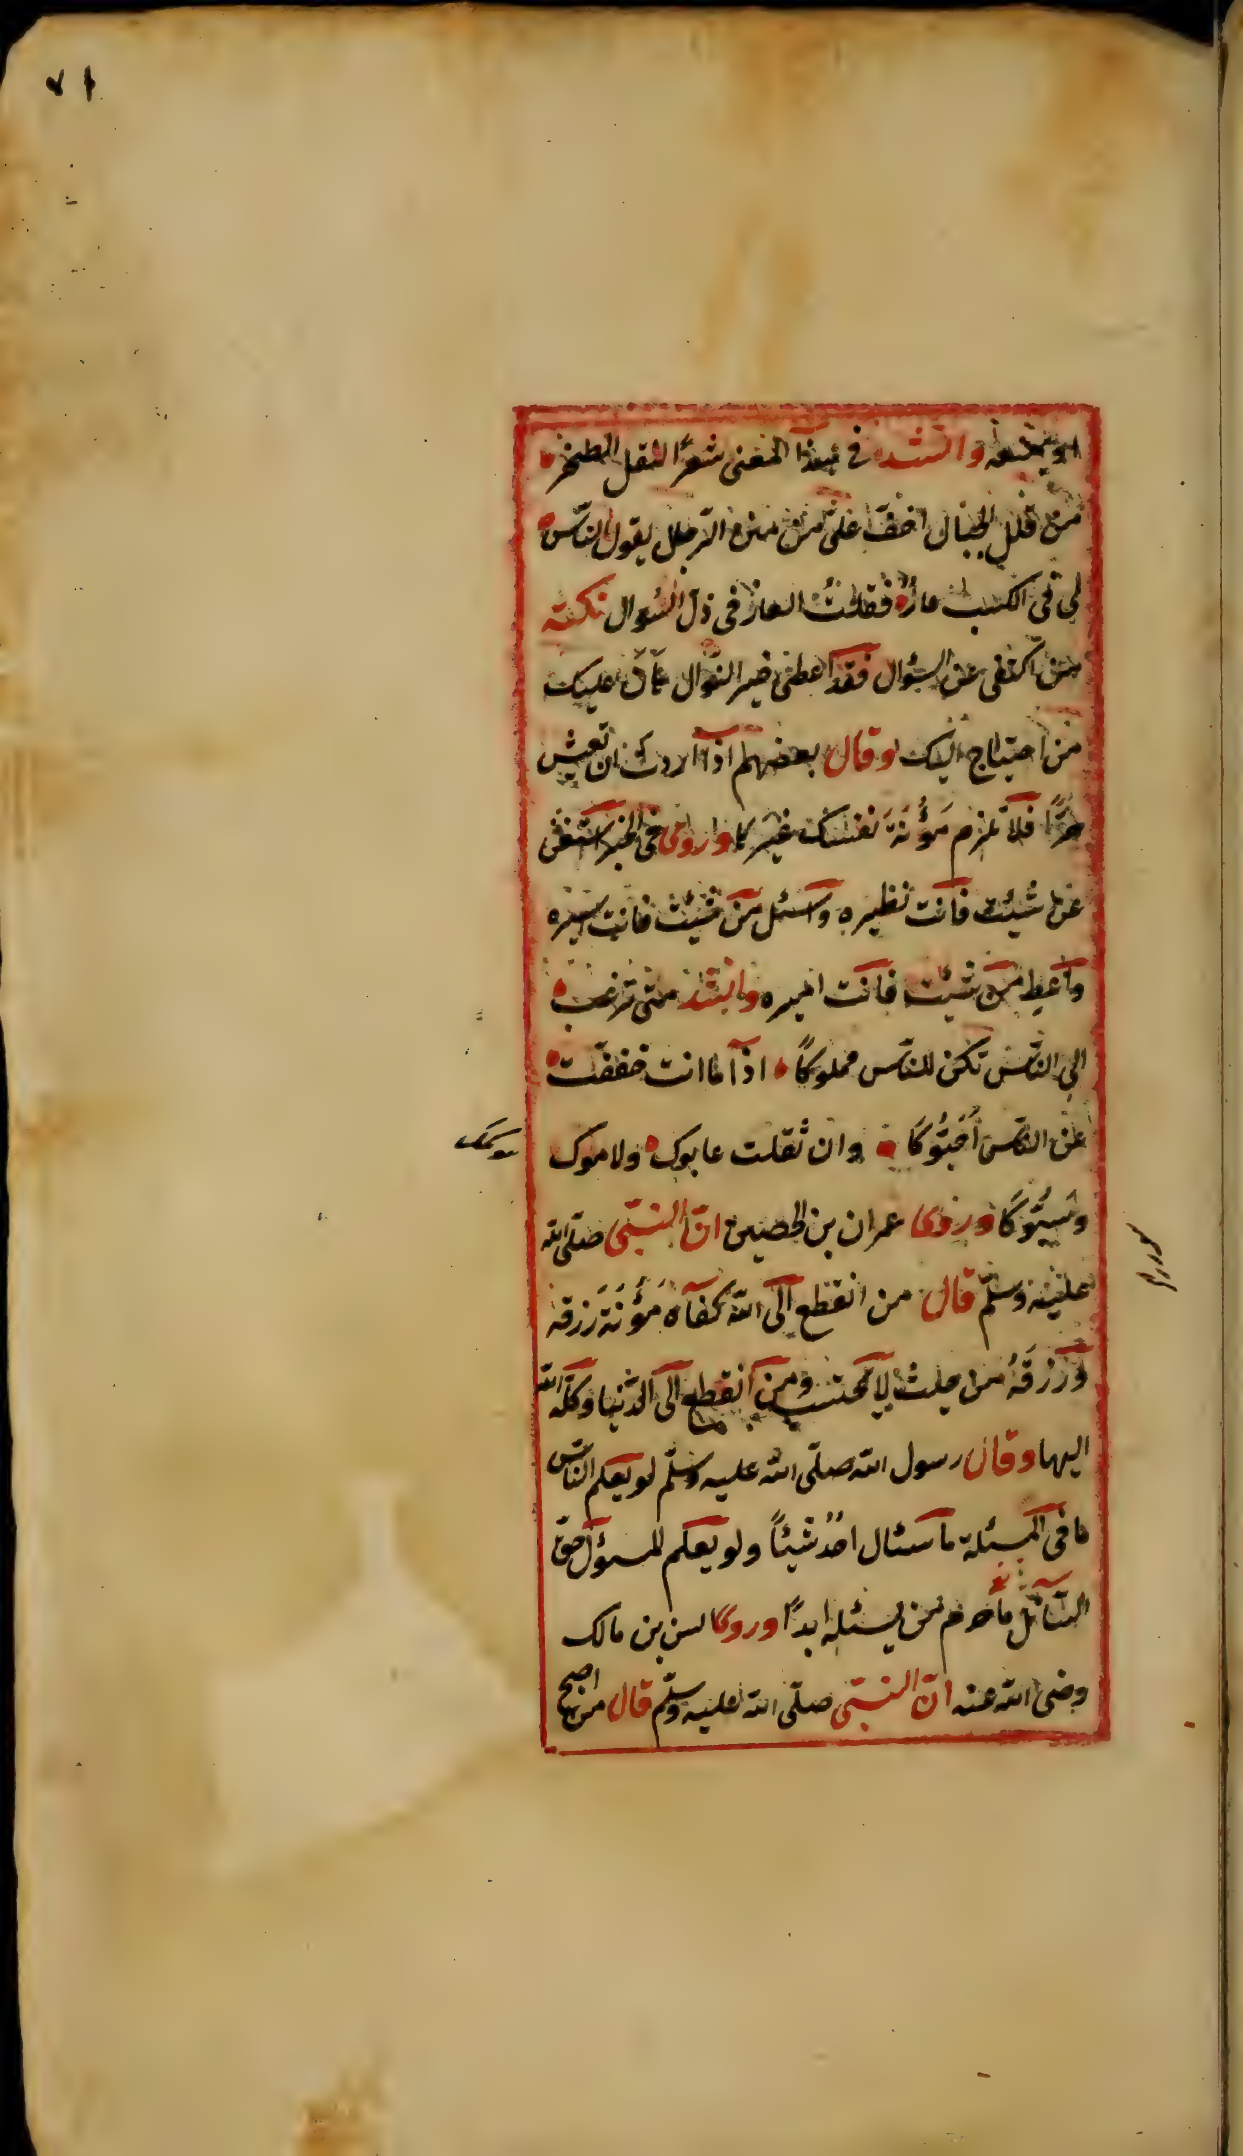 ٧١
او يمنعه وانشد فى هذا المعنى شعرًا لنقل الصخر
من قلل الجبال اخفّ علىّ من منن الرّجال يقول النّاس
لى فى الكسب عارٌ فقلتُ العار فى ذلّ السّوال نكته
من اكتفى عن السؤال فقد اعطى خير النوال علیک
من احتیاج الیک وقال بعضهم اذا اردت ان تعیش
حرًّا فلا تلزم مَؤُنَةَ نفسک غیرک وروى فى الخبر استغن
عن شئت فانت نظیره وآسئل من شئت فانت اسیره
وآعط من شئت فانت امیره وانشد متى ترغب
الى النّاس تکن للنّاس مملوکًا اذآ ما انت خففت
عن النّاس اَحَبُّوکا وان ثقلت عابوک ولاموک
وسَبُّوکا وروى عمران بن الحصین انّ النّبىّ صلّى الله
علیه وسلّم قال من انقطع الى الله کفاه مَؤُنَةَ رزقه
ورَزَقَهُ من حیث لا یحتسب ومن انقطع الى الدّنیا وکله الله
الیها وقال رسول الله صلّى الله علیه وسلّم لو یعلم النّاس
ما فى المسئلة ما سئال احدٌ شیئاً ولو یعلم المسؤل حقّ
السّآئل ما حرم من یسئله ابدًا وروى انس بن مالک
رضى الله عنه انّ النّبىّ صلّى الله علیه وسلّم قال من اصبح